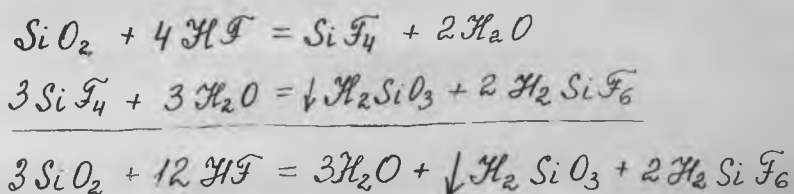 SiO₂ + 4HF = SiF₄ + 2H₂O
3SiF₄ + 3H₂O = ↓H₂SiO₃ + 2H₂SiF₆
3SiO₂ + 12HF = 3H₂O + ↓H₂SiO₃ + 2H₂SiF₆